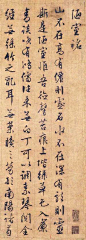 陋室銘
山不在高有僊則名水不在深有龍則靈
斯是陋室惟吾德馨苔痕上階綠草色入簾
青談笑有鴻儒往來無白丁可以調素琴閱金
經無絲竹之亂耳無案牘之勞形南陽諸葛